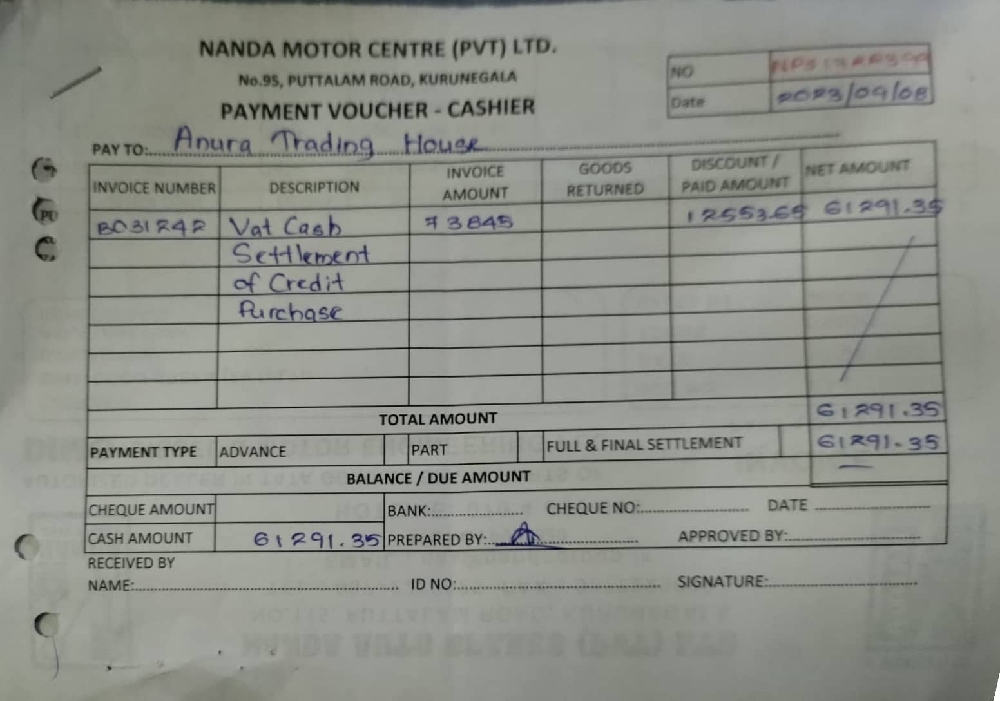 NANDA MOTOR CENTRE (PVT) LTD.
No.95, PUTTALAM ROAD, KURUNEGALA
PAYMENT VOUCHER - CASHIER
NO
Date 2023/09/08
PAY TO: Anura Trading House
INVOICE NUMBER DESCRIPTION INVOICE AMOUNT GOODS RETURNED DISCOUNT / PAID AMOUNT NET AMOUNT
B031242 Vat Cash 73845 12553.65 61291.35
Settlement
of Credit
Purchase
TOTAL AMOUNT 61291.35
PAYMENT TYPE ADVANCE PART FULL & FINAL SETTLEMENT 61291.35
BALANCE / DUE AMOUNT
CHEQUE AMOUNT BANK: CHEQUE NO: DATE
CASH AMOUNT 61291.35 PREPARED BY: APPROVED BY:
RECEIVED BY
NAME: ID NO: SIGNATURE: